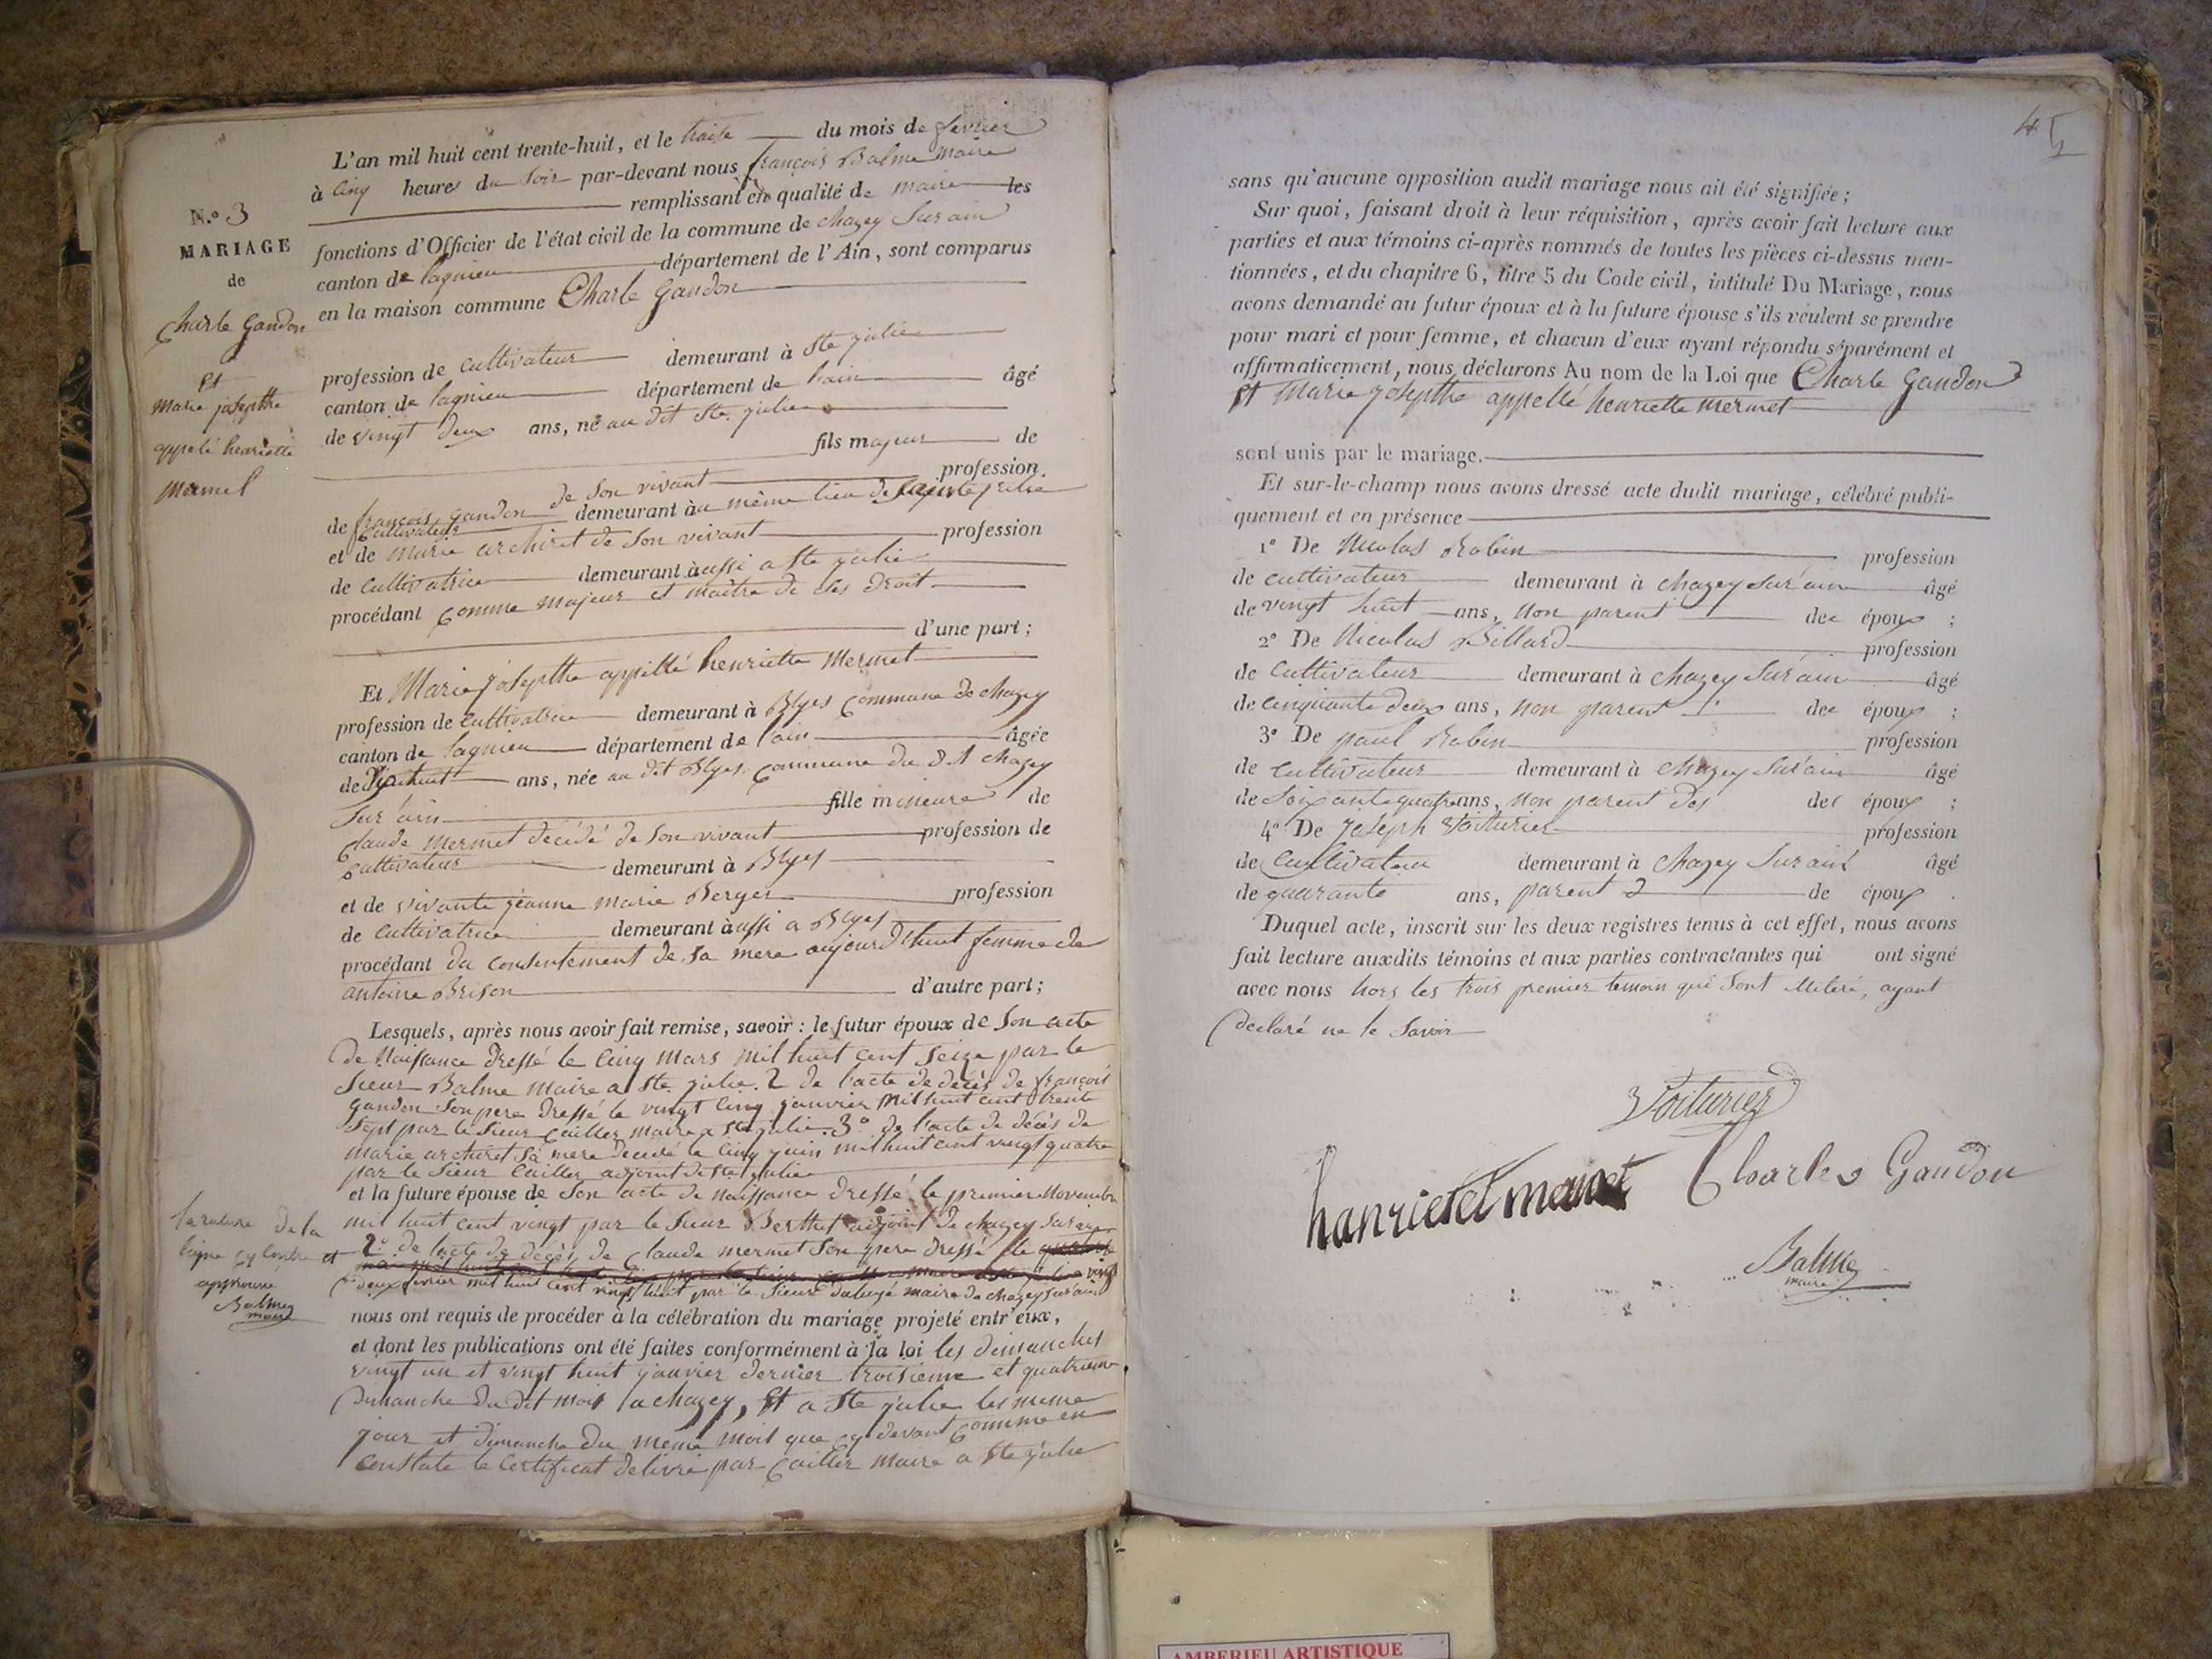 N.º 3
MARIAGE
de
Charle Gandon
Et
Marie josepthe
appelé henriette
Mermet
L'an mil huit cent trente-huit, et le traise du mois de fevrier
à Cinq heures du Soir par-devant nous françois Balme Maire
remplissant en qualité de maire les
fonctions d'Officier de l'état civil de la commune de chazey Sur ain
canton de lagnieu département de l'Ain, sont comparus
en la maison commune Charle Gandon
profession de Cultivateur demeurant à Ste julie
canton de lagnieu département de lain âgé
de vingt deux ans, né au dit Ste. julie
fils majeur de
de son vivant profession
de françois gandon demeurant au même lieu de Sainte julie
Cultivateur
et de marie archiret de Son vivant profession
de Cultivatrice demeurant à ussi a Ste julie
procédant comme majeur et maitre de Ses Droit
d'une part;
Et Marie josepthe appellé henriette Mermet
profession de Cultivatrice demeurant à Blyes Commune de chazey
canton de lagnieu département de l'ain âgée
de Dixhuit ans, née au dit Blyes Commune du dt chazey
Sur ain fille mineure de
Claude Mermet décédé de Son vivant profession de
Cultivateur demeurant à Blyes
et de vivante jéanne marie Berger profession
de Cultivatrice demeurant àussi a Blyes
procédant du consentement de Sa mere aujourdhuit femme de
antoine Brison d'autre part;
Lesquels, après nous avoir fait remise, savoir: le futur époux de Son acte
de Naissance Dressé le Cinq Mars mil huit Cent Seize par le
Sieur Balme maire a Ste. julie. 2 de l'acte de décès de françois
gandon Son pere Dressé le vingt Cinq janvier Mil huit cent trente
Sept par le Sieur Cailler maire a Ste julie. 3º de l'acte de décès de
marie archiret Sa mere decede le Cinq juin mil huit cent vingt quatre
par le Sieur Cailler adjoint de Ste julie
et la future épouse de Son acte de Naissance Dressé le premier Novembre
mil huit cent vingt par le Sieur Berthet adjoint de chazey Sur ain
2º de lacte de décès de Claude mermet Son pere Dressé le
deux fevrier mil huit Cent vingt huit par le Sieur maire de chazey Sur ain
la rature de la
ligne cy contre et
approuvé
Balme
maire
nous ont requis de procéder à la célébration du mariage projeté entr'eux,
et dont les publications ont été faites conformément à la loi les dimanches
vingt un et vingt huit janvier dernier troisieme et quatrieme
Dimanche du dit mois a chazey, Et a Ste julie les meme
jour et dimanche du meme mois que cy devant Comme en
Constate le Certificat delivré par Cailler maire a Ste julie
45
sans qu'aucune opposition audit mariage nous ait été signifiée;
Sur quoi, faisant droit à leur réquisition, après avoir fait lecture aux
parties et aux témoins ci-après nommés de toutes les pièces ci-dessus men-
tionnées, et du chapitre 6, titre 5 du Code civil, intitulé Du Mariage, nous
avons demandé au futur époux et à la future épouse s'ils veulent se prendre
pour mari et pour femme, et chacun d'eux ayant répondu séparément et
affirmativement, nous déclarons Au nom de la Loi que Charle Gandon
Et Marie josepthe appellé henriette mermet
sont unis par le mariage.
Et sur-le-champ nous avons dressé acte dudit mariage, célébré publi-
quement et en présence
1º De Nicolas Robin profession
de cultivateur demeurant à chazey Sur ain âgé
de vingt huit ans, non parent des époux ;
2º De Nicolas Billard profession
de Cultivateur demeurant à chazey Sur ain âgé
de cinquante deux ans, non parent des époux ;
3º De paul Robin profession
de Cultivateur demeurant à chazey Sur ain âgé
de Soixante quatre ans, non parent des des époux ;
4º De Joseph Voiturier profession
de Cultivateur demeurant à Chazey Sur ain âgé
de quarante ans, parent de époux .
Duquel acte, inscrit sur les deux registres tenus à cet effet, nous avons
fait lecture auxdits témoins et aux parties contractantes qui ont signé
avec nous hors les trois premier temoin qui Sont illiteré, ayant
declaré ne le Savoir
Voiturier
hanrietet mermet Charles Gandon
Balme
maire
AMBERIEU ARTISTIQUE